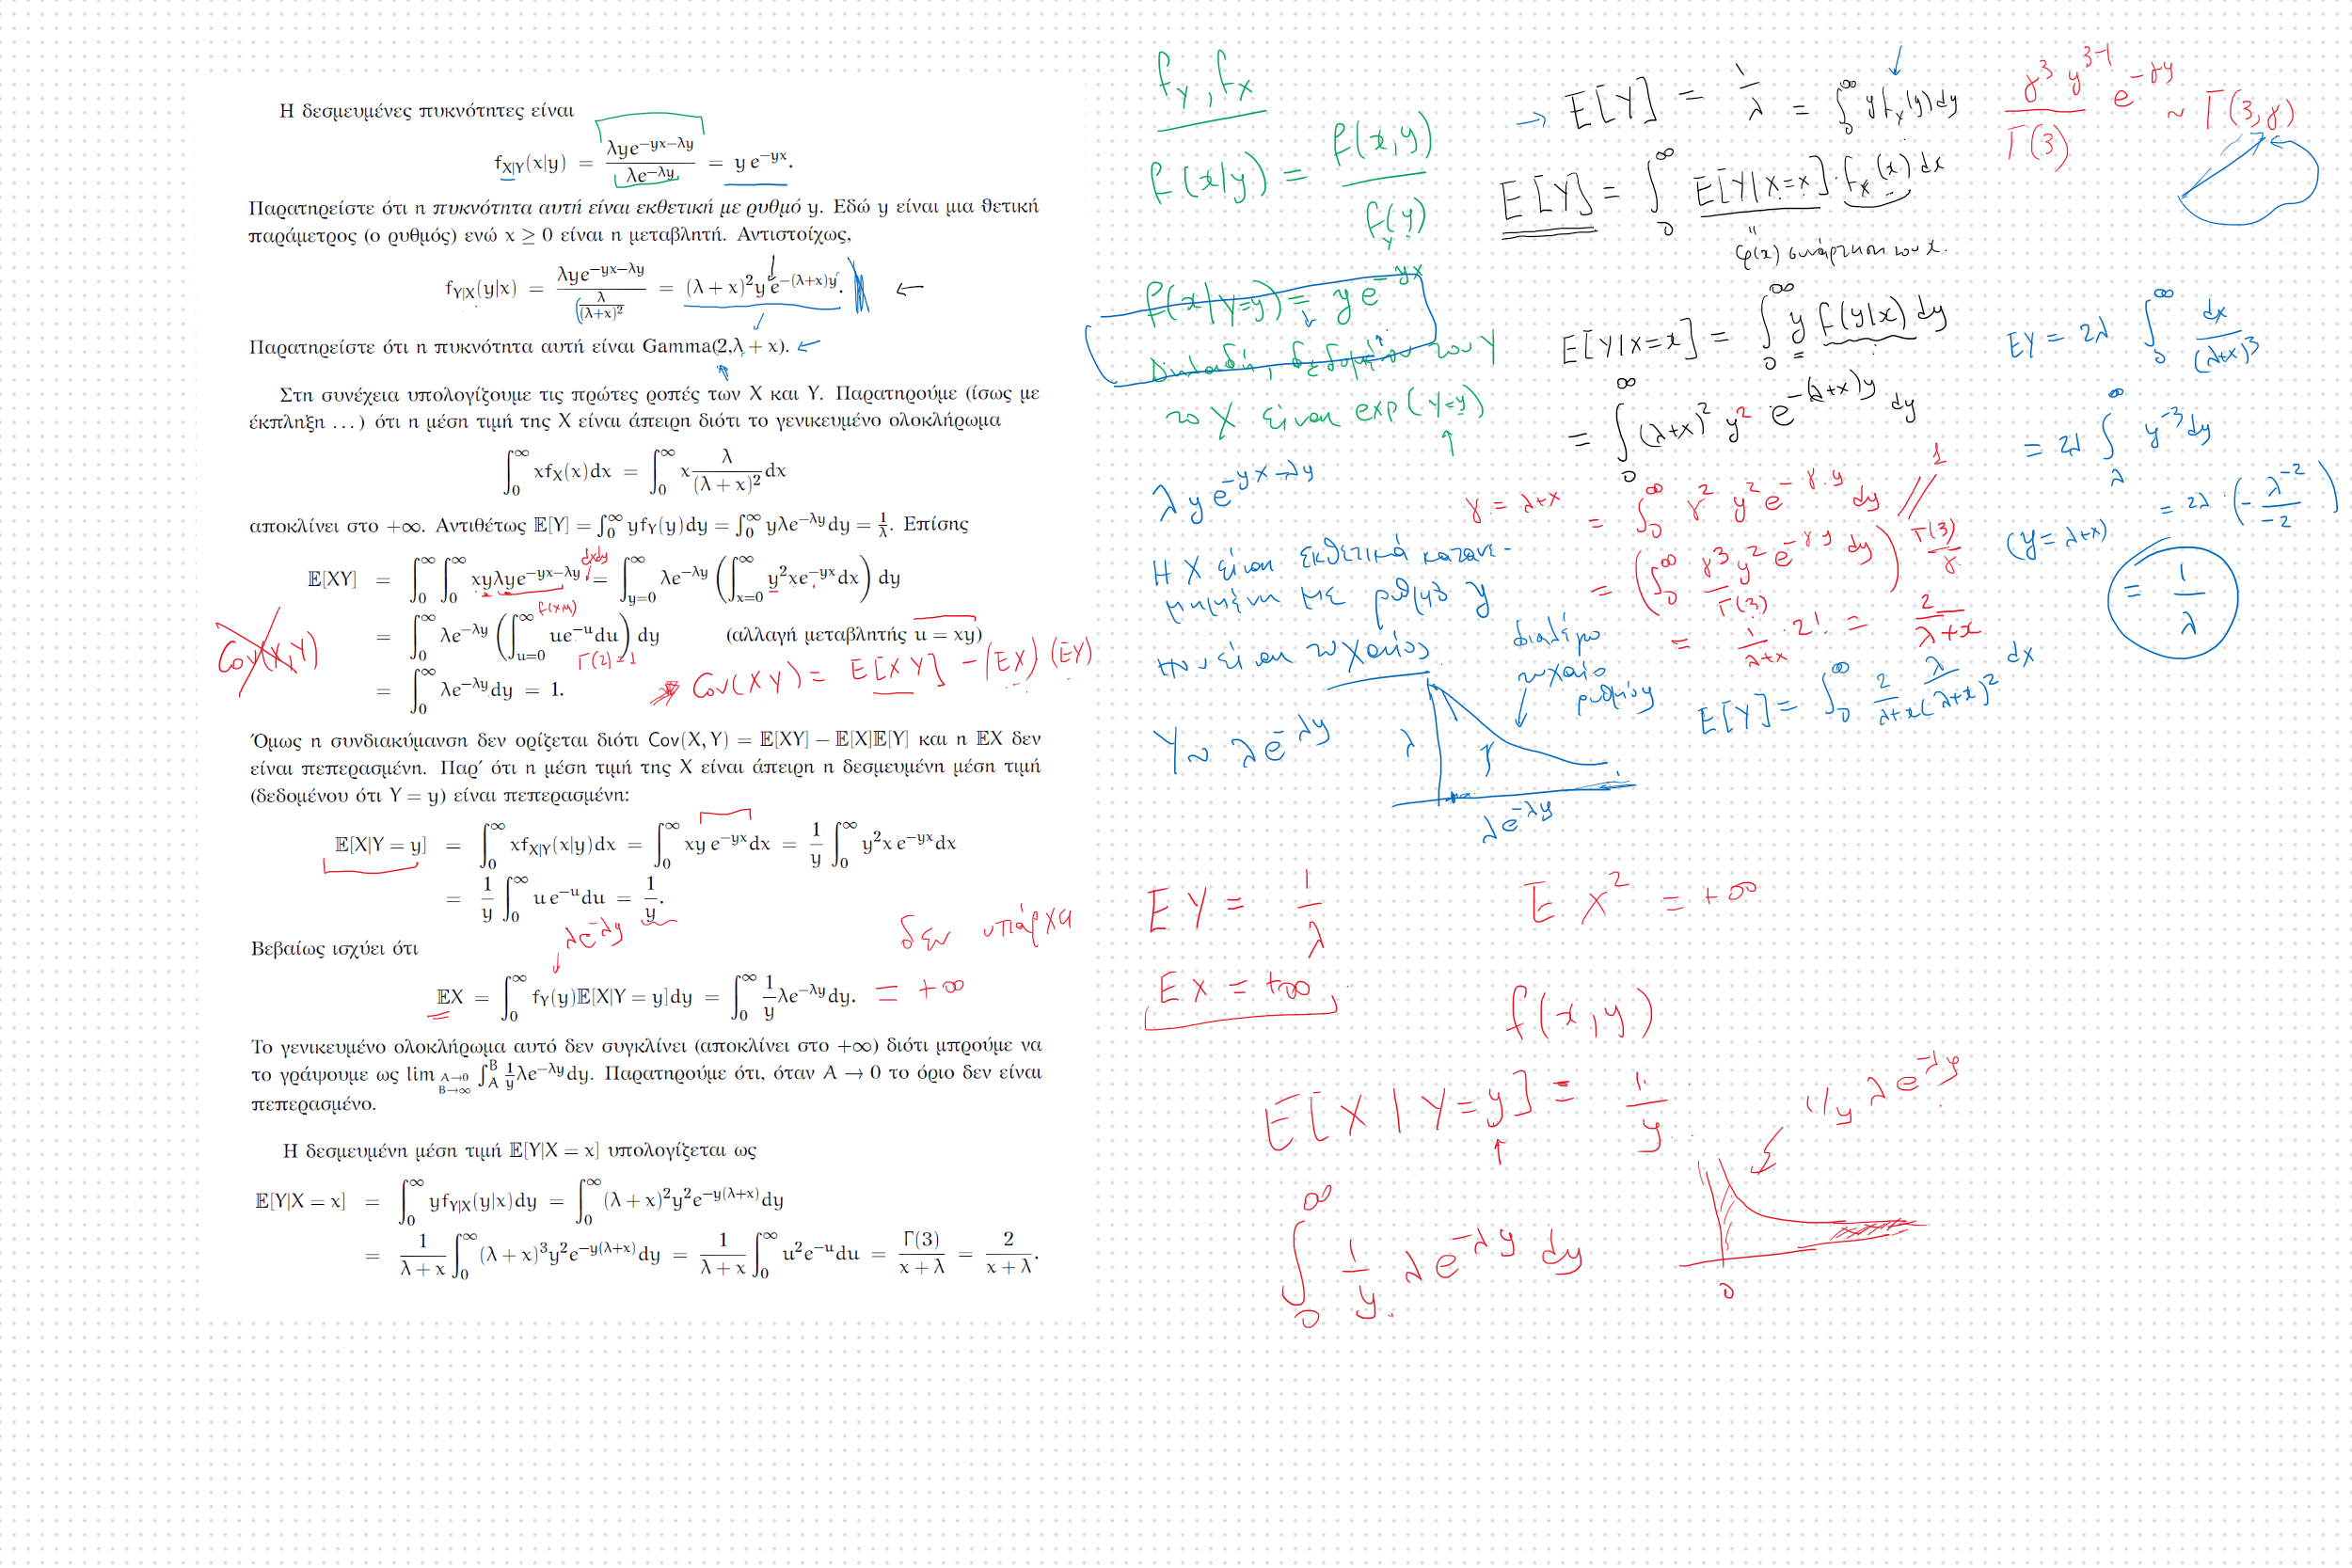 Η δεσμευμένες πυκνότητες είναι
f_{X|Y}(x|y) = λye^{−yx−λy} / λe^{−λy} = y e^{−yx}.
Παρατηρείστε ότι η πυκνότητα αυτή είναι εκθετική με ρυθμό y. Εδώ y είναι μια θετική
παράμετρος (ο ρυθμός) ενώ x ≥ 0 είναι η μεταβλητή. Αντιστοίχως,
f_{Y|X}(y|x) = λye^{−yx−λy} / (λ/(λ+x)^2) = (λ + x)^2 y e^{−(λ+x)y}. ←
Παρατηρείστε ότι η πυκνότητα αυτή είναι Gamma(2,λ + x). ←
Στη συνέχεια υπολογίζουμε τις πρώτες ροπές των X και Y. Παρατηρούμε (ίσως με
έκπληξη ...) ότι η μέση τιμή της X είναι άπειρη διότι το γενικευμένο ολοκλήρωμα
∫_0^∞ x f_X(x)dx = ∫_0^∞ x λ/(λ + x)^2 dx
αποκλίνει στο +∞. Αντιθέτως 𝔼[Y] = ∫_0^∞ y f_Y(y)dy = ∫_0^∞ yλe^{−λy}dy = 1/λ. Επίσης
dxdy
𝔼[XY] = ∫_0^∞ ∫_0^∞ xyλye^{−yx−λy} = ∫_{y=0}^∞ λe^{−λy} (∫_{x=0}^∞ y^2xe^{−yx}dx) dy
f(x,y)
= ∫_0^∞ λe^{−λy} (∫_{u=0}^∞ ue^{−u}du) dy (αλλαγή μεταβλητής u = xy)
Cov(X,Y)
Γ(2)=1
= ∫_0^∞ λe^{−λy}dy = 1.
Cov(XY) = E[XY] − (EX)(EY)
Όμως η συνδιακύμανση δεν ορίζεται διότι Cov(X, Y) = 𝔼[XY] − 𝔼[X]𝔼[Y] και η 𝔼X δεν
είναι πεπερασμένη. Παρ' ότι η μέση τιμή της X είναι άπειρη η δεσμευμένη μέση τιμή
(δεδομένου ότι Y = y) είναι πεπερασμένη:
𝔼[X|Y = y] = ∫_0^∞ x f_{X|Y}(x|y)dx = ∫_0^∞ xy e^{−yx}dx = 1/y ∫_0^∞ y^2x e^{−yx}dx
= 1/y ∫_0^∞ u e^{−u}du = 1/y.
λe^{−λy}
δεν υπάρχει
Βεβαίως ισχύει ότι
𝔼X = ∫_0^∞ f_Y(y)𝔼[X|Y = y]dy = ∫_0^∞ 1/y λe^{−λy}dy. = +∞
Το γενικευμένο ολοκλήρωμα αυτό δεν συγκλίνει (αποκλίνει στο +∞) διότι μπρούμε να
το γράψουμε ως lim_{A→0 B→∞} ∫_A^B 1/y λe^{−λy}dy. Παρατηρούμε ότι, όταν A → 0 το όριο δεν είναι
πεπερασμένο.
Η δεσμευμένη μέση τιμή 𝔼[Y|X = x] υπολογίζεται ως
𝔼[Y|X = x] = ∫_0^∞ y f_{Y|X}(y|x)dy = ∫_0^∞ (λ + x)^2y^2e^{−y(λ+x)}dy
= 1/(λ + x) ∫_0^∞ (λ + x)^3y^2e^{−y(λ+x)}dy = 1/(λ + x) ∫_0^∞ u^2e^{−u}du = Γ(3)/(x + λ) = 2/(x + λ).
f_Y, f_X
f(x|y) = f(x,y) / f_Y(y)
f(x|Y=y) = y e^{−yx}
Δηλαδή, δεδομένου του Y
το X είναι exp(Y=y)
λ y e^{−yx−λy}
Η X είναι εκθετικά κατανε-
μημένη με ρυθμό y
που είναι τυχαίος.
Y ~ λe^{−λy}
διαλέγω
τυχαίο
ρυθμό y
λ
λe^{−λy}
→ E[Y] = 1/λ = ∫_0^∞ y f_Y(y)dy
E[Y] = ∫_0^∞ E[Y|X=x]·f_X(x)dx
φ(x) συνάρτηση του x.
E[Y|X=x] = ∫_0^∞ y f(y|x)dy
= ∫_0^∞ (λ+x)^2 y^2 e^{−(λ+x)y} dy
γ := λ+x
= ∫_0^∞ γ^2 y^2 e^{−γ·y} dy
1
= (∫_0^∞ γ^3 y^2 e^{−γy} / Γ(3) dy) Γ(3)/γ
= 1/(λ+x) · 2! = 2/(λ+x)
E[Y] = ∫_0^∞ 2/(λ+x) λ/(λ+x)^2 dx
γ^3 y^{3−1} / Γ(3) e^{−γy} ~ Γ(3,γ)
EY = 2λ ∫_0^∞ dx/(λ+x)^3
= 2λ ∫_λ^∞ y^{−3}dy
(y=λ+x)
= 2λ·(−λ^{−2}/−2)
= 1/λ
EY = 1/λ
E X^2 = +∞
EX = +∞
f(x,y)
E[X|Y=y] = 1/y
1/y λe^{−λy}
∫_0^∞ 1/y λe^{−λy} dy
0